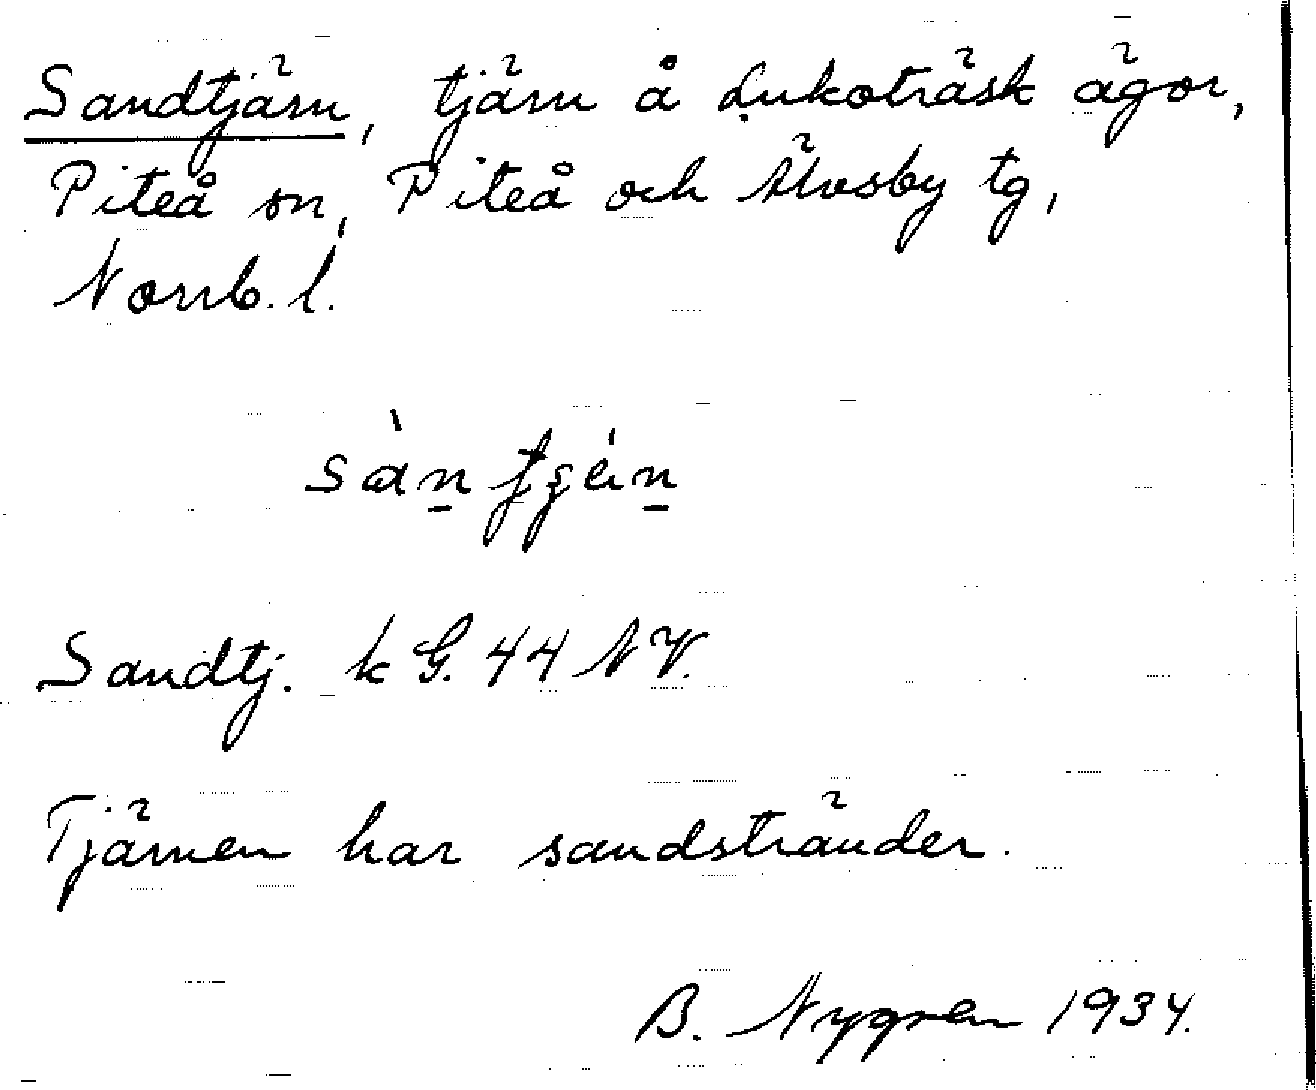 Sandtjärn, tjärn å Lukoträsk ägor,
Piteå sn, Piteå och Älvsby tg,
Norrb. l.
Sandtj. k G. 44 NV.
Tjärnen har sandstränder.
B. Nygren 1934.